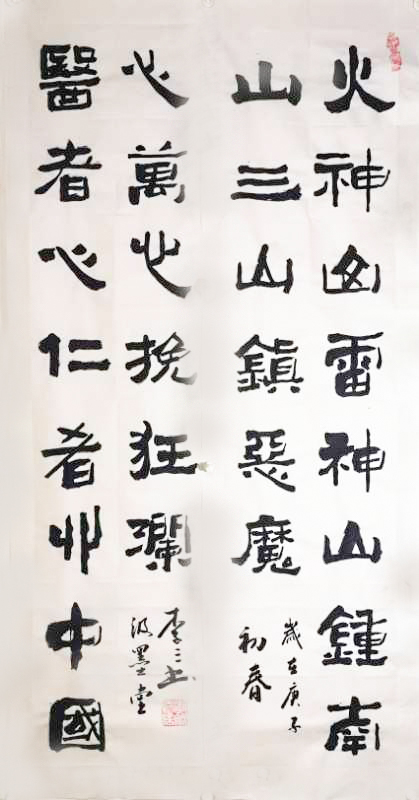 火神山雷神山鍾南
山三山鎮惡魔
歲在庚子
初春
醫者心仁者心中國
心萬心挽狂瀾
李三
墨堂